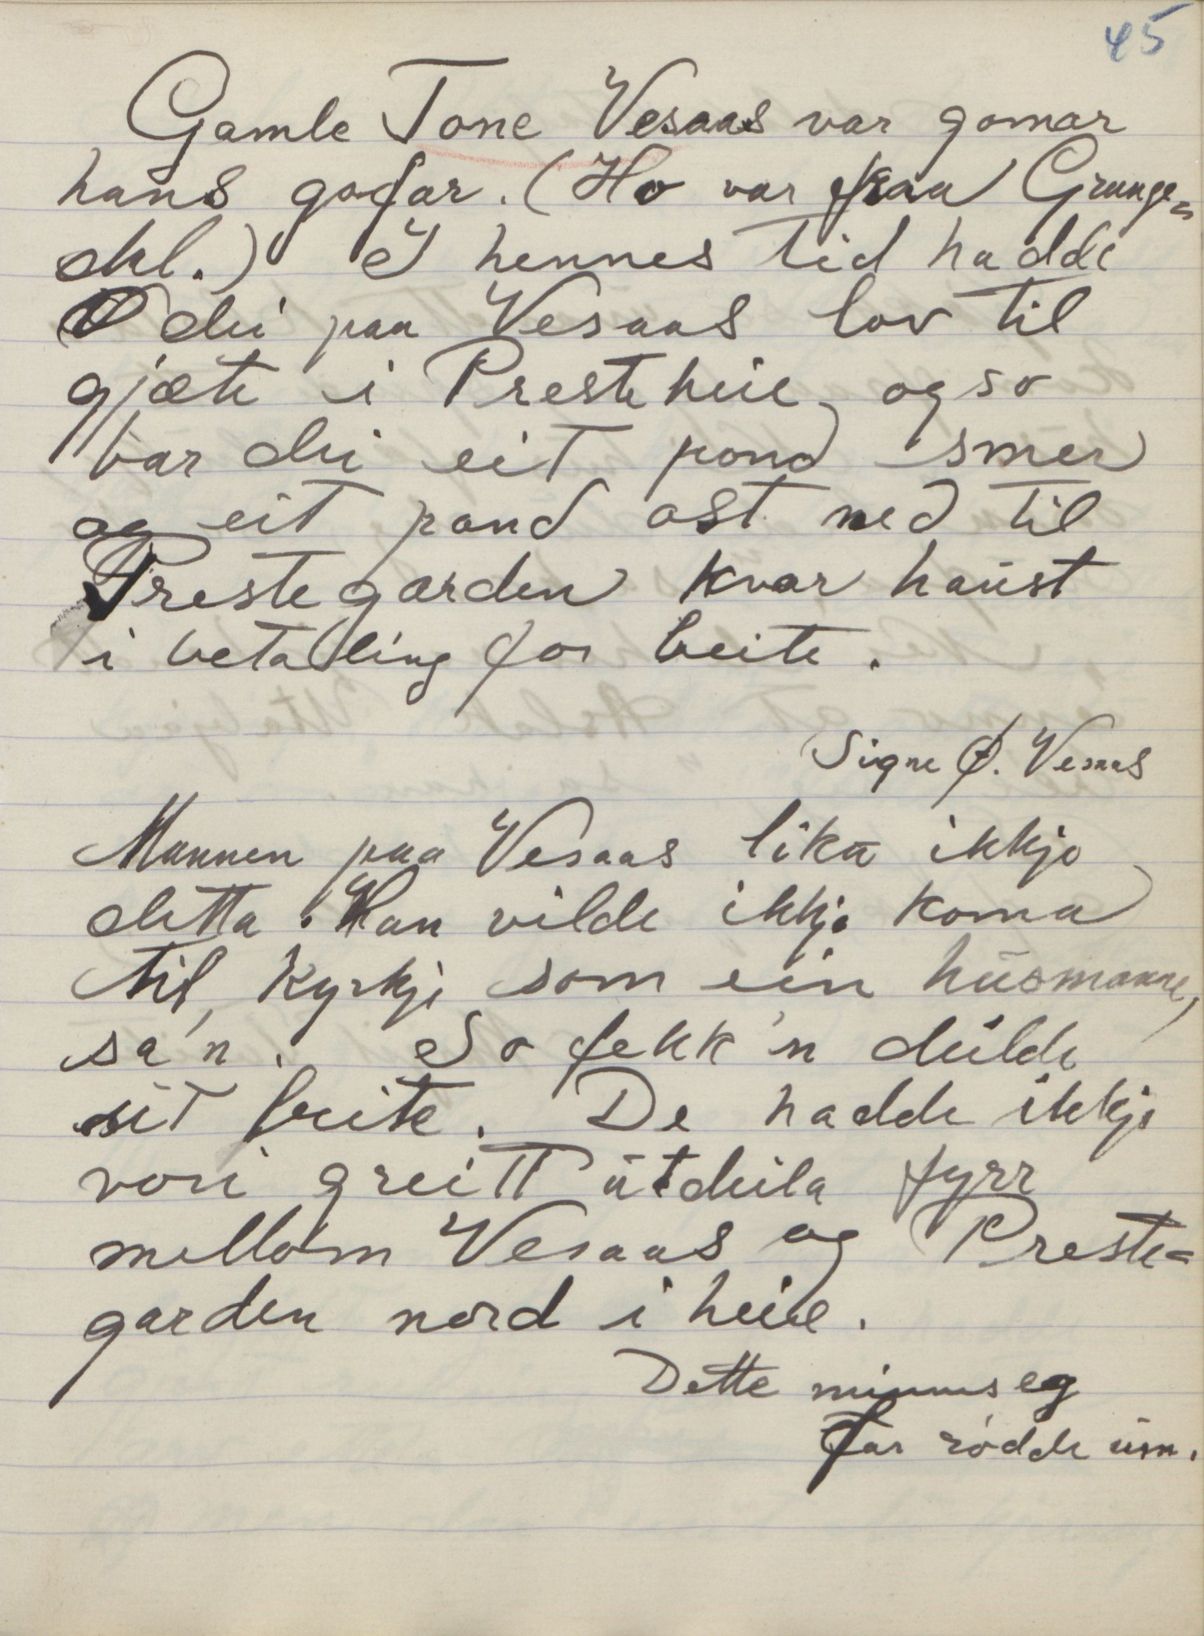 45
Gamle Tone Vesaas var gomor
hans gofar. (Ho var fraa Grunge=
dal.) I hennes tid hadde
dei paa Vesaas lov til
gjæte i Presteheie, og so
bar dei eit pond smør
og eit pond ost ned til
Prestegarden kvar haust
i betaling for beite.
Signe Ø. Vesaas
Mannen paa Vesaas lika ikkje
detta. Han vilde ikkje koma
til kyrkje som ein husmann,
sa'n. So fekk'n deilde
sit beite. De hadde ikkje
vori greitt utdeila fyrr
mellom Vesaas og Preste=
garden nord i heie.
Dette minnus eg
far rødde um.